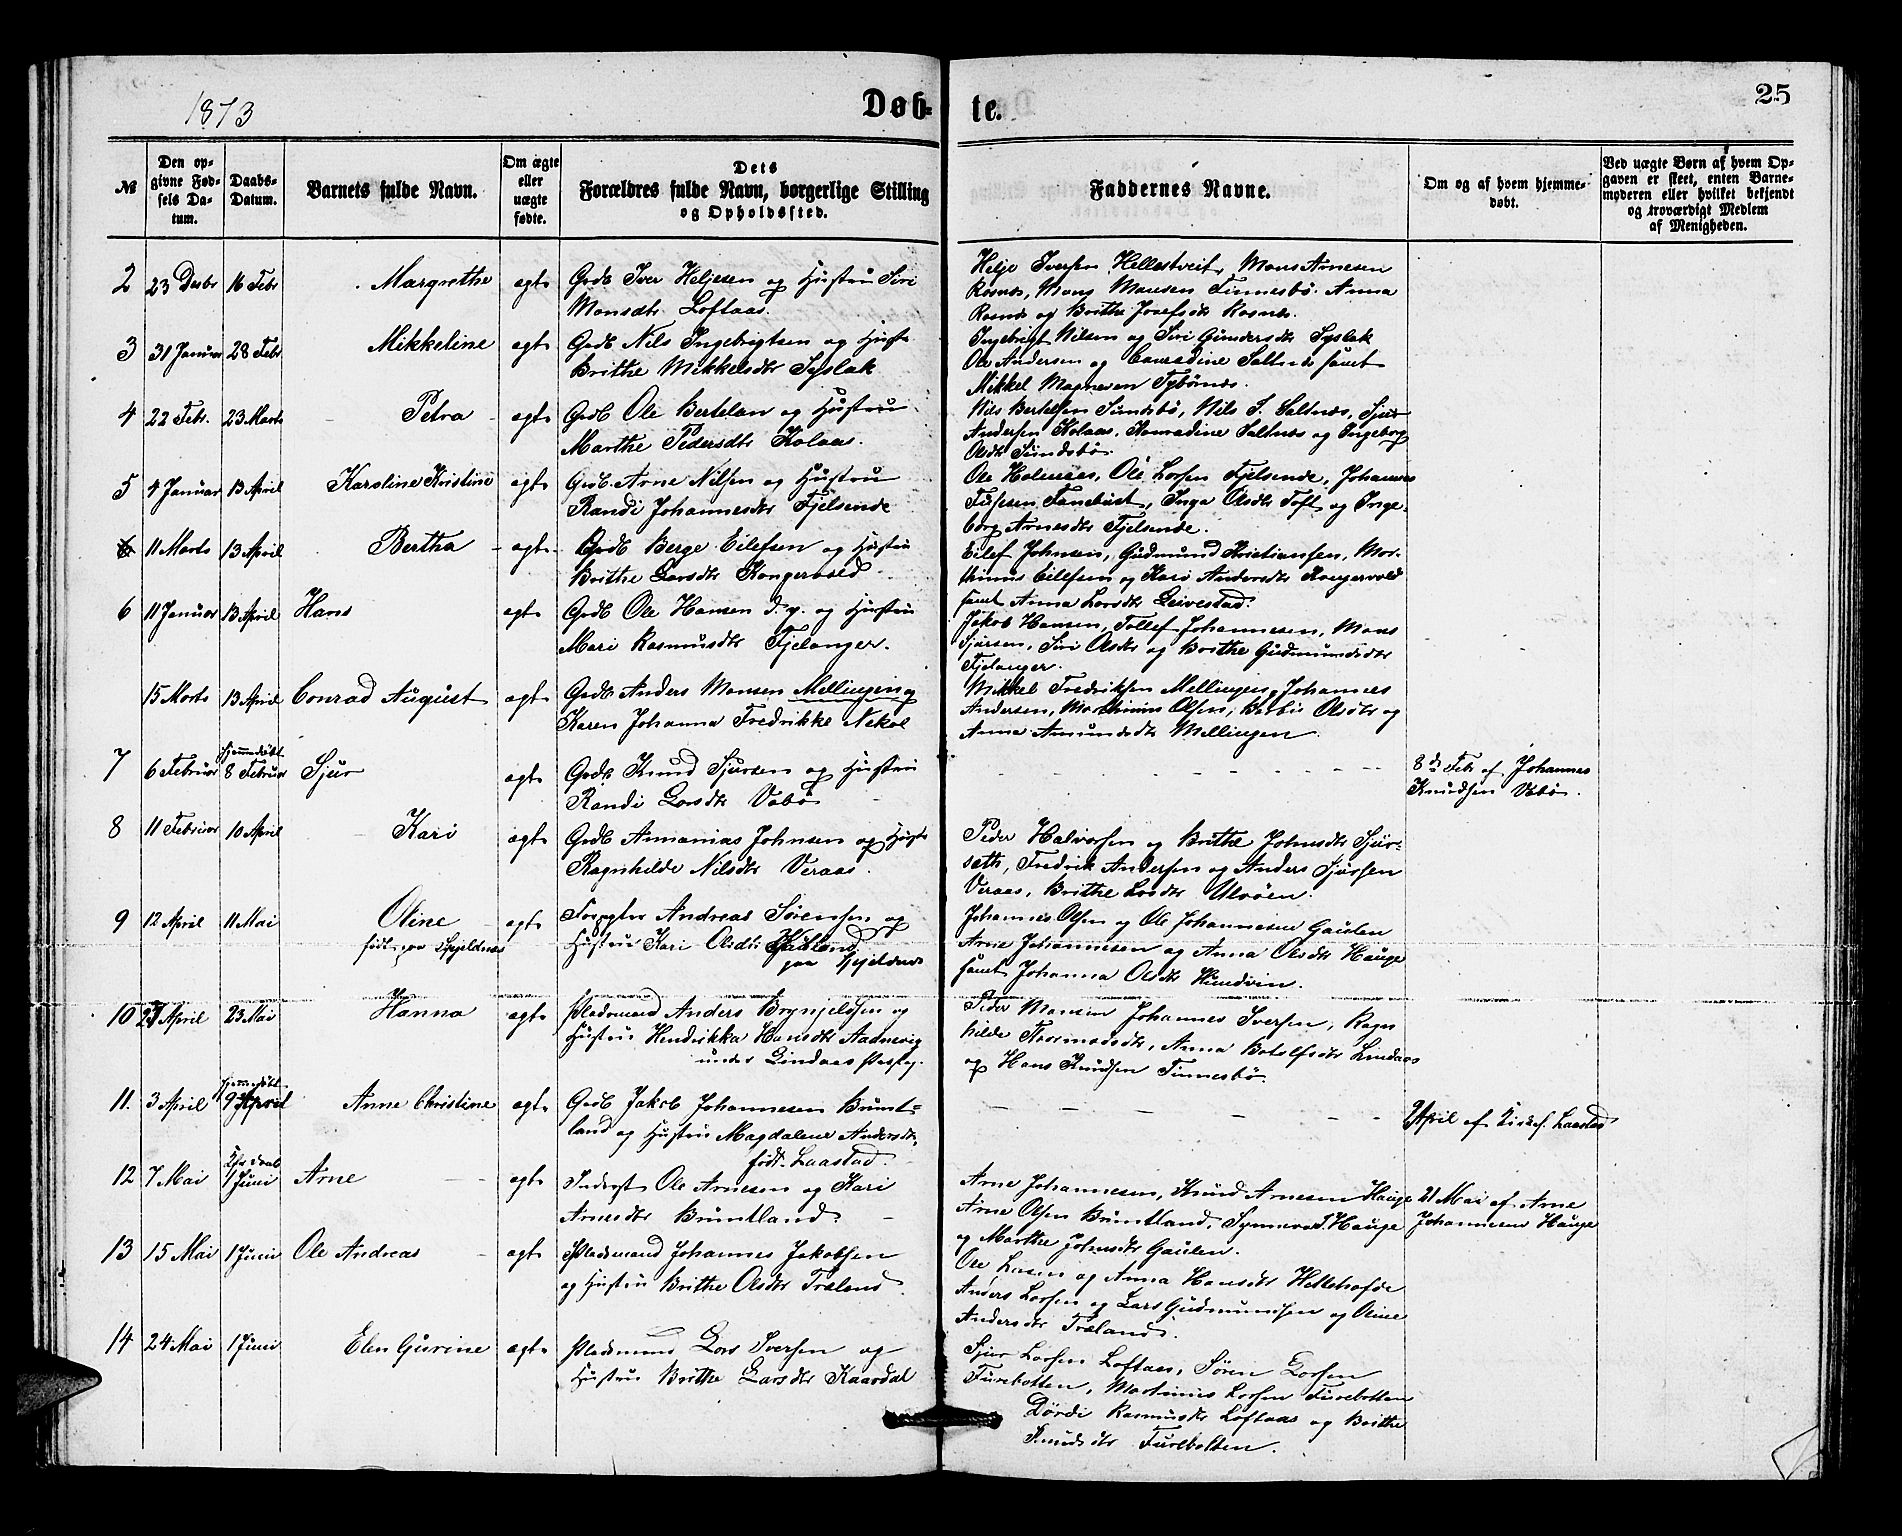 1873
Døb-
te.
25
№
Den op-
givne Fød-
sels Da-
tum.
Daabs-
Datum.
Barnets fulde Navn.
Om ægte
eller
uægte
fødte.
Dets
Forældres fulde Navn, borgerlige Stilling
og Opholdssted.
Faddernes Navne.
Om og af hvem hjemme-
døbt.
Ved uægte Børn af hvem Op-
gaven er skeet, enten Barne-
moderen eller hvilket bekjendt
og troværdigt Medlem
af Menigheden.
2 23 Decbr 16 Febr Margrethe ægte Grdb Iver Heljesen og Hustru Siri
Monsdtr Loftaas.
Helje Iversen Hellestveit, Mons Arnesen
Rosnæs, Mons Monsen Finnesbø. Anna
Rosnæs og Brithe Josefsdtr Rosnæs.
3 31 Januar 28 Febr Mikkeline ægte Grdb Nils Ingebrigtsen og Hustr
Brithe Mikkelsdtr Syslak
Ingebrigt Nilsen og Siri Gundersdtr Syslak
Ole Andersen og Conradine Saltnæs samt
Mikkel Magnesen
4 22 Febr. 23 Marts Petra ægte Grdb Ole Bertelsen og Hustru
Marthe Pedersdtr Kolaas.
Nils Bertelsen Sundsbø, Nils J. Saltnæs, Sjur
Andersen Kolaas, Konradine Saltnæs og Ingeborg
Olsdtr Sundsbø
5 4 Januar 13 April Karoline Kristine ægte Grdb. Arne Nilsen og Hustru
Randi Johannesdtr Fjelsende
Ole Holmaas, Ole Larsen Fjelsende, Johannes
Fanebust, Inga Olsdtr Toft og Inge-
borg Arnesdtr Fjelsende.
11 Marts 13 April Bertha ægte Grdb Berge Eilefsen og Hustru
Brithe Larsdtr Kongervold
Eilef Johnsen, Gudmund Kristiansen, Mor-
thinus Eilefsen og Kari Andersdtr Kongervold
samt Anna Larsdtr Leivestad.
6 11 Januar 13 April Hans ægte Grdb Ole Hansen d.y. og Hustru
Mari Rasmusdtr Fjelanger.
Jakob Hansen, Tollef Johannesen, Mons
Sjursen, Siri Olsdtr og Brithe Gudmundsdtr
Fjelanger.
15 Marts 13 April Conrad August ægte Grdb Anders Monsen Mellingen og
Karen Johanna Fredrikke Nekoe
Mikkel Fredriksen Mellingen, Johannes
Andersen, Marthinus Olsen, Olsdtr og
Anna Amundsdtr Mellingen
7 6 Februar hjemmedøbt
8 Februar Sjur ægte Grdb Knud Sjursen og Hustru
Randi Larsdtr Vabø
8de Febr af Johannes
Knudsen Vabø.
8 11 Februar 10 April Kari ægte Grdb Annanias Johnsen og Hustr
Ragnhilde Nilsdtr Veraas.
Peder Halvorsen og Brithe Johnsdtr Sjur-
sæth, Fredrik Andersen og Anders Sjursen
Veraas, Brithe Larsdtr Ulvøen.
9 12 April 11 Mai Oline
født paa Spjeldnæs ægte Andreas Sørensen og
Hustru Kari Olsdtr
paa Spjeldnæs
Johannes Olsen og Ole Johannesen Gaulen
Arne Johannesen og Anna Olsdtr Hauge
samt Johanna Olsdtr Hundvin.
10 27 April 23 Mai Hanna ægte Pladsmand Anders Brynjelsen og
Hustru Hendrikka Hansdtr Aadnevig
under Lindaas Præsteg.
Peder Monsen Johannes Iversen, Ragn
hilde Thormodsdtr, Anna Botolfsdtr Lindaas
og Hans Knudsen Finnesbø.
11. 3 April hjemmedøbt
9 April Anne Christine ægte Grdb Jakob Johannesen Brunt-
land og Hustru Magdalene Andersdtr,
født Laastad.
9 April af Laastad
12 7 Mai
1 Juni Arne ægte Inderst Ole Arnesen og Kari
Arnesdtr Bruntland.
Arne Johannesen, Knud Arnesen Hauge
Arne Olsen Bruntland, Synneve J. Hauge
og Marthe Johnsdtr Gaulen.
21 Mai af Arne
Johannesen Hauge
13 15 Mai 1 Juni Ole Andreas ægte Pladsmand Johannes Jakobsen
og Hustru Brithe Olsdtr Træland.
Ole Larsen og Anna Hansdtr
Anders Larsen og Lars Gudmundsen og Oline
Andersdtr Træland.
14 24 Mai 1 Juni Elen Gurine ægte Pladsmand Lars Iversen og
Hustru Brithe Larsdtr Kaardal
Sjur Larsen Loftaas, Søren Larsen
Furebotten, Martinus Larsen Furebotten
Dordi Rasmusdtr Loftaas og Brithe
Knudsdtr Furebotten.